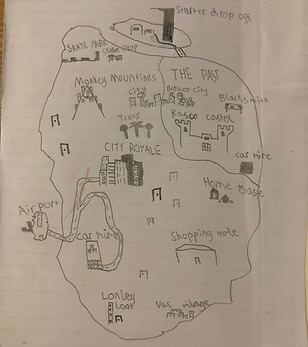 Starter drop off
SKATE PARK
Monkey Mountines
THE PAST
City
Broken city
Blacksmith
Trees
Rosco castel
CITY ROYALE
car hire
Home Base
Airport
car hire
Shopping mole
Lonley
Loot
village